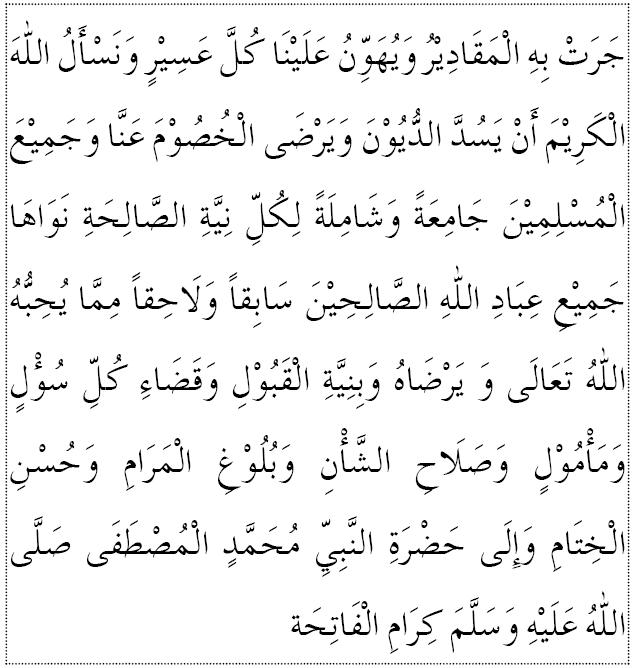 جَرَتْ بِهِ الْمَقَادِيْرُ وَيُهَوِّنُ عَلَيْنَا كُلَّ عَسِيْرٍ وَنَسْأَلُ اللهَ
الْكَرِيْمَ أَنْ يَسُدَّ الدُّيُوْنَ وَيَرْضَى الْخُصُوْمَ عَنَّا وَجَمِيْعَ
الْمُسْلِمِيْنَ جَامِعَةً وَشَامِلَةً لِكُلِّ نِيَّةِ الصَّالِحَةِ نَوَاهَا
جَمِيْعِ عِبَادِ اللهِ الصَّالِحِيْنَ سَابِقاً وَلَاحِقاً مِمَّا يُحِبُّهُ
اللهُ تَعَالَى وَ يَرْضَاهُ وَبِنِيَّةِ الْقَبُوْلِ وَقَضَاءِ كُلِّ سُؤْلٍ
وَمَأْمُوْلٍ وَصَلَاحِ الشَّأْنِ وَبُلُوْغِ الْمَرَامِ وَحُسْنِ
الْخِتَامِ وَإِلَى حَضْرَةِ النَّبِيِّ مُحَمَّدٍ الْمُصْطَفَى صَلَّى
اللهُ عَلَيْهِ وَسَلَّمَ كِرَامِ الْفَاتِحَة